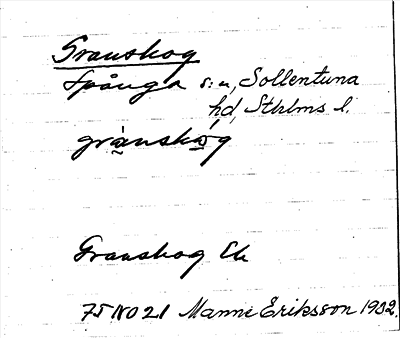 Granskog
Spånga sn, Sollentuna
hd, Sthlms l.
grànskog
Granskog Ek
75 NO 21 Manne Eriksson 1932.